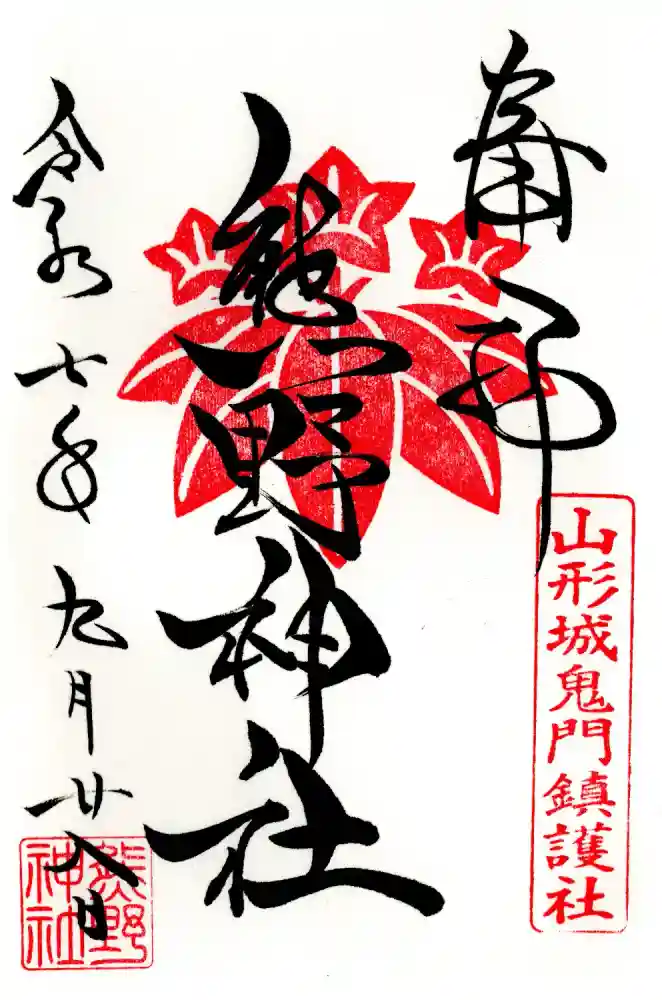 奉拝
山形城鬼門鎮護社
熊野神社
令和七年九月廿八日
熊野神社